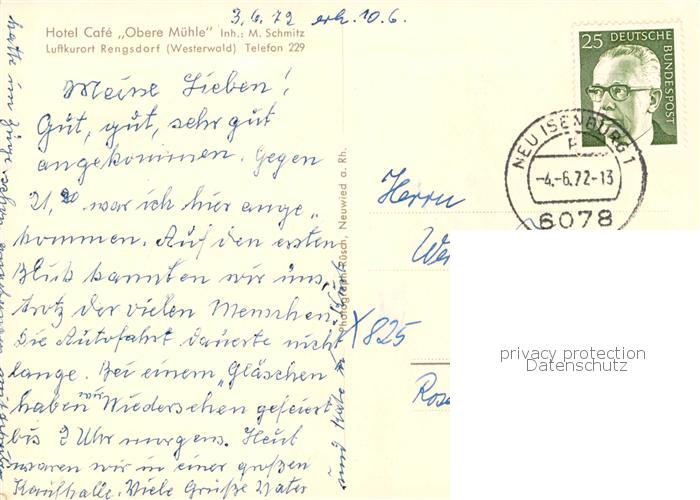 3.6.72 erh. 10.6.
Hotel Café „Obere Mühle" Inh.: M. Schmitz
Luftkurort Rengsdorf (Westerwald) Telefon 229
Meine Lieben!
Gut, gut, sehr gut
angekommen. Gegen
21,20 war ich hier ange„
kommen. Auf den ersten
Blick kannten wir uns,
trotz der vielen Menschen.
Die Autofahrt dauerte nicht
lange. Bei einem „Gläschen
haben wir Wiedersehen gefeiert
bis 2 Uhr morgens. Heut
waren wir in einer großen
Kaufhalle. Viele Grüße Vater
und
hatte im Zuge schon
Photograph Rüsch, Neuwied a. Rh.
25 DEUTSCHE
BUNDESPOST
NEU ISENBURG 1
-4.-6.72-13
6078
Herrn
X825
privacy protection
Datenschutz